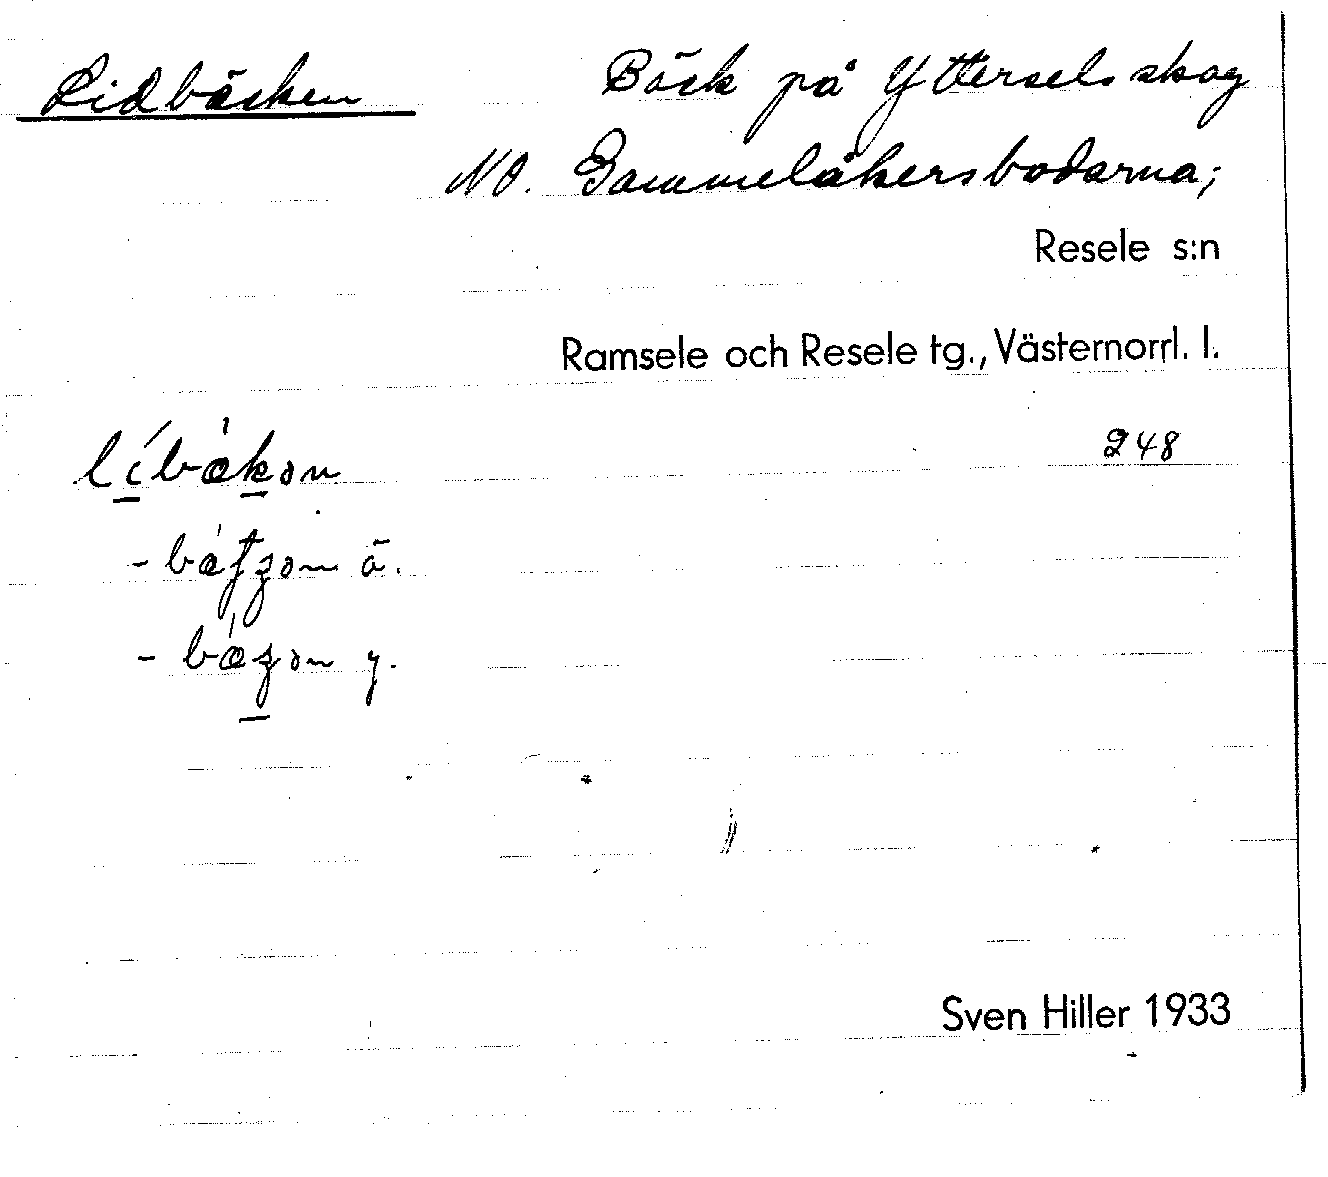 Lidbäcken
Bäck på Ytterselsskog
NO. Gammelåkersbodarna;
Resele s:n
Ramsele och Resele tg., Västernorrl. l.
248
- ä.
- y.
Sven Hiller 1933